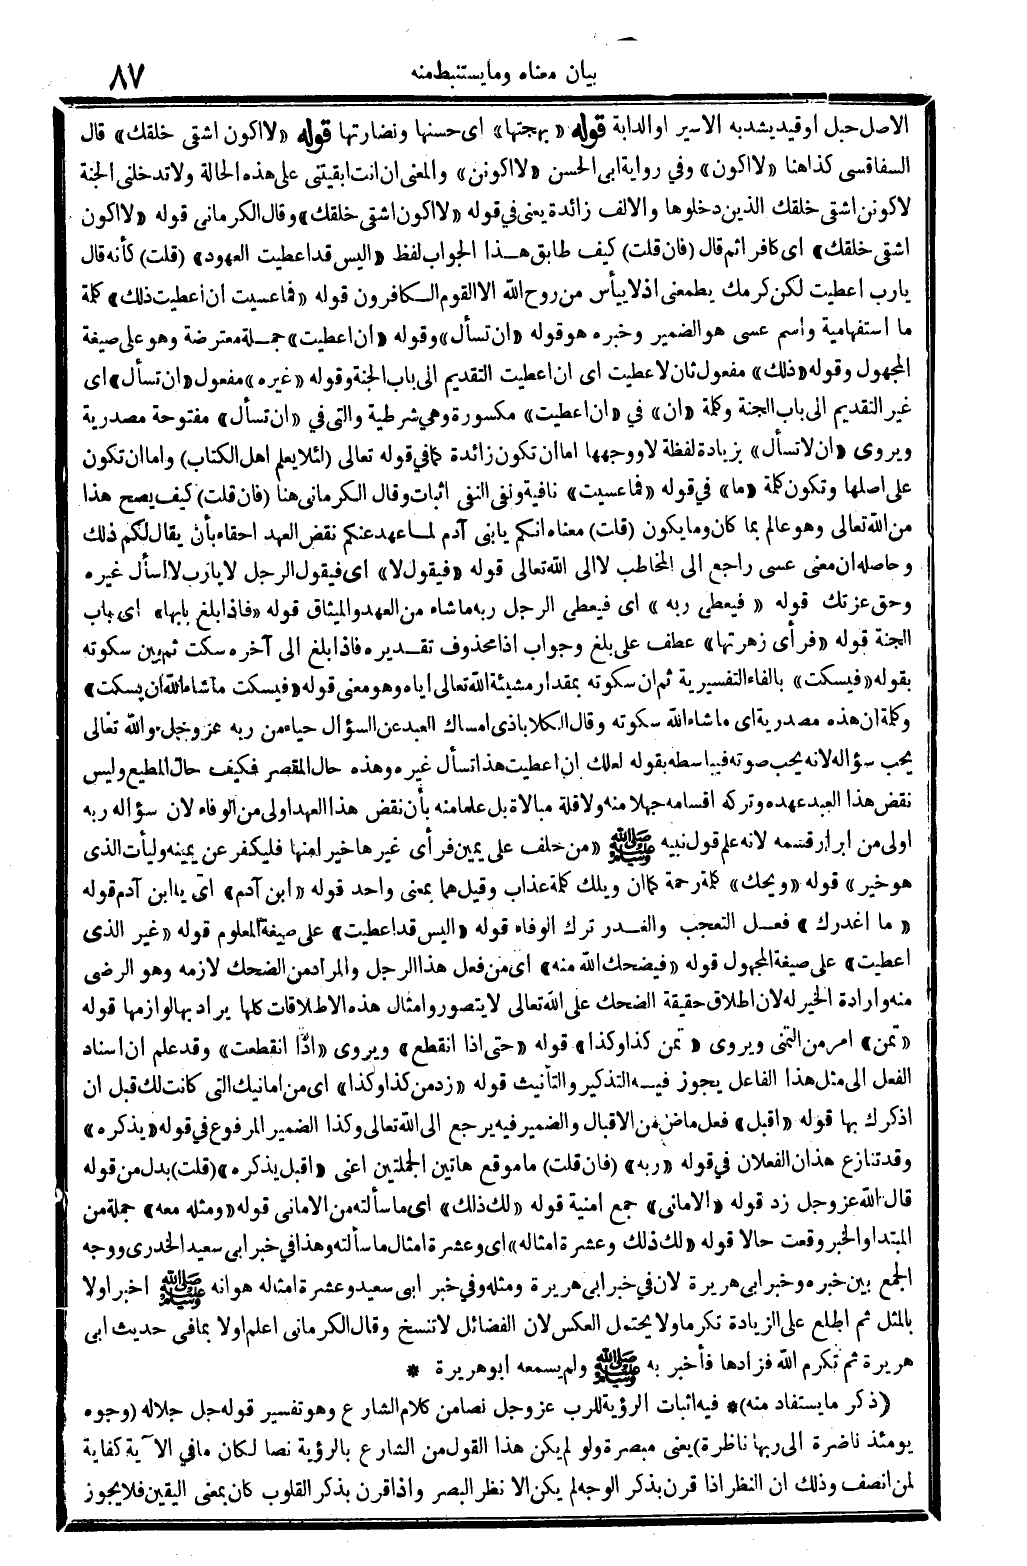 بيان معناه وما يستنبط منه ٨٧
الاصل حبل او قيد يشد به الاسير او الدابة قوله «بهجتها» اى حسنها ونضارتها قوله «لا اكون اشقى خلقك» قال
السفاقسى كذا هنا «لا اكون» وفي رواية ابى الحسن «لا كونن» والمعنى ان انت ابقيتنى على هذه الحالة ولا تدخلنى الجنة
لا كونن اشقى خلقك الذين دخلوها والالف زائدة يعنى في قوله «لا اكون اشقى خلقك» وقال الكرمانى قوله «لا اكون
اشقى خلقك» اى كافرا ثم قال (فان قلت) كيف طابق هذا الجواب لفظ «اليس قد اعطيت العهود» (قلت) كأنه قال
يارب اعطيت لكن كرمك يطمعنى اذ لا ييأس من روح الله الا القوم الكافرون قوله «فما عسيت ان اعطيت ذلك» كلمة
ما استفهامية واسم عسى هو الضمير وخبره هو قوله «ان تسأل» وقوله «ان اعطيت» جملة معترضة وهو على صيغة
المجهول وقوله «ذلك» مفعول ثان لاعطيت اى ان اعطيت التقديم الى باب الجنة وقوله «غيره» مفعول «ان تسأل» اى
غير التقديم الى باب الجنة وكلمة «ان» في «ان اعطيت» مكسورة وهي شرطية والتى في «ان تسأل» مفتوحة مصدرية
ويروى «ان لا تسأل» بزيادة لفظة لا ووجهها اما ان تكون زائدة كما في قوله تعالى (لئلا يعلم اهل الكتاب) واما ان تكون
على اصلها وتكون كلمة «ما» في قوله «فما عسيت» نافية ونفى النفى اثبات وقال الكرمانى هنا (فان قلت) كيف يصح هذا
من الله تعالى وهو عالم بما كان وما يكون (قلت) معناه انكم يا بنى آدم لما عهد عنكم نقض العهد احقاء بأن يقال لكم ذلك
وحاصله ان معنى عسى راجع الى المخاطب لا الى الله تعالى قوله «فيقول لا» اى فيقول الرجل لا يارب لا اسأل غيره
وحق عزتك قوله «فيعطى ربه» اى فيعطى الرجل ربه ما شاء من العهد والميثاق قوله «فاذا بلغ بابها» اى باب
الجنة قوله «فرأى زهرتها» عطف على بلغ وجواب اذا محذوف تقديره فاذا بلغ الى آخره سكت ثم بين سكوته
بقوله «فيسكت» بالفاء التفسيرية ثم ان سكوته بمقدار مشيئة الله تعالى اياه وهو معنى قوله «فيسكت ما شاء الله ان يسكت»
وكلمة ان هذه مصدرية اى ما شاء الله سكوته وقال الكلاباذى امساك العبد عن السؤال حياء من ربه عز وجل والله تعالى
يحب سؤاله لانه يحب صوته فيباسطه بقوله لعلك ان اعطيت هذا تسأل غيره وهذه حال المقصر فكيف حال المطيع وليس
نقض هذا العبد عهده وتركه اقسامه جهلا منه ولا قلة مبالاة بل علما منه بأن نقض هذا العهد اولى من الوفاء لان سؤاله ربه
اولى من ابرار قسمه لانه علم قول نبيه ﷺ «من حلف على يمين فرأى غيرها خيرا منها فليكفر عن يمينه وليأت الذى
هو خير» قوله «ويحك» كلمة رحمة كما ان ويلك كلمة عذاب وقيل هما بمعنى واحد قوله «ابن آدم» اى يا ابن آدم قوله
«ما اغدرك» فعل التعجب والغدر ترك الوفاء قوله «اليس قد اعطيت» على صيغة المعلوم قوله «غير الذى
اعطيت» على صيغة المجهول قوله «فيضحك الله منه» اى من فعل هذا الرجل والمراد من الضحك لازمه وهو الرضى
منه وارادة الخير له لان اطلاق حقيقة الضحك على الله تعالى لا يتصور وامثال هذه الاطلاقات كلها يراد بها لوازمها قوله
«تمن» امر من التمنى ويروى «تمن كذا وكذا» قوله «حتى اذا انقطع» ويروى «اذا انقطعت» وقد علم ان اسناد
الفعل الى مثل هذا الفاعل يجوز فيه التذكير والتأنيث قوله «زد من كذا وكذا» اى من امانيك التى كانت لك قبل ان
اذكرك بها قوله «اقبل» فعل ماض من الاقبال والضمير فيه يرجع الى الله تعالى وكذا الضمير المرفوع في قوله «يذكره»
وقد تنازع هذان الفعلان في قوله «ربه» (فان قلت) ما موقع هاتين الجملتين اعنى «اقبل يذكره» (قلت) بدل من قوله
قال الله عز وجل زد قوله «الامانى» جمع امنية قوله «لك ذلك» اى ما سألته من الامانى قوله «ومثله معه» جملة من
المبتدا والخبر وقعت حالا قوله «لك ذلك وعشرة امثاله» اى وعشرة امثال ما سألته وهذا في خبر ابى سعيد الخدرى ووجه
الجمع بين خبره وخبر ابى هريرة لان في خبر ابى هريرة ومثله وفي خبر ابى سعيد وعشرة امثاله هو انه ﷺ اخبر اولا
بالمثل ثم اطلع على الزيادة تكرما ولا يحتمل العكس لان الفضائل لا تنسخ وقال الكرمانى اعلم اولا بما في حديث ابى
هريرة ثم تكرم الله فزادها فأخبر به ﷺ ولم يسمعه ابو هريرة *
(ذكر ما يستفاد منه)* فيه اثبات الرؤية للرب عز وجل نصا من كلام الشارع وهو تفسير قوله جل جلاله (وجوه
يومئذ ناضرة الى ربها ناظرة) يعنى مبصرة ولو لم يكن هذا القول من الشارع بالرؤية نصا لكان ما في الآية كفاية
لمن انصف وذلك ان النظر اذا قرن بذكر الوجه لم يكن الا نظر البصر واذا قرن بذكر القلوب كان بمعنى اليقين فلا يجوز